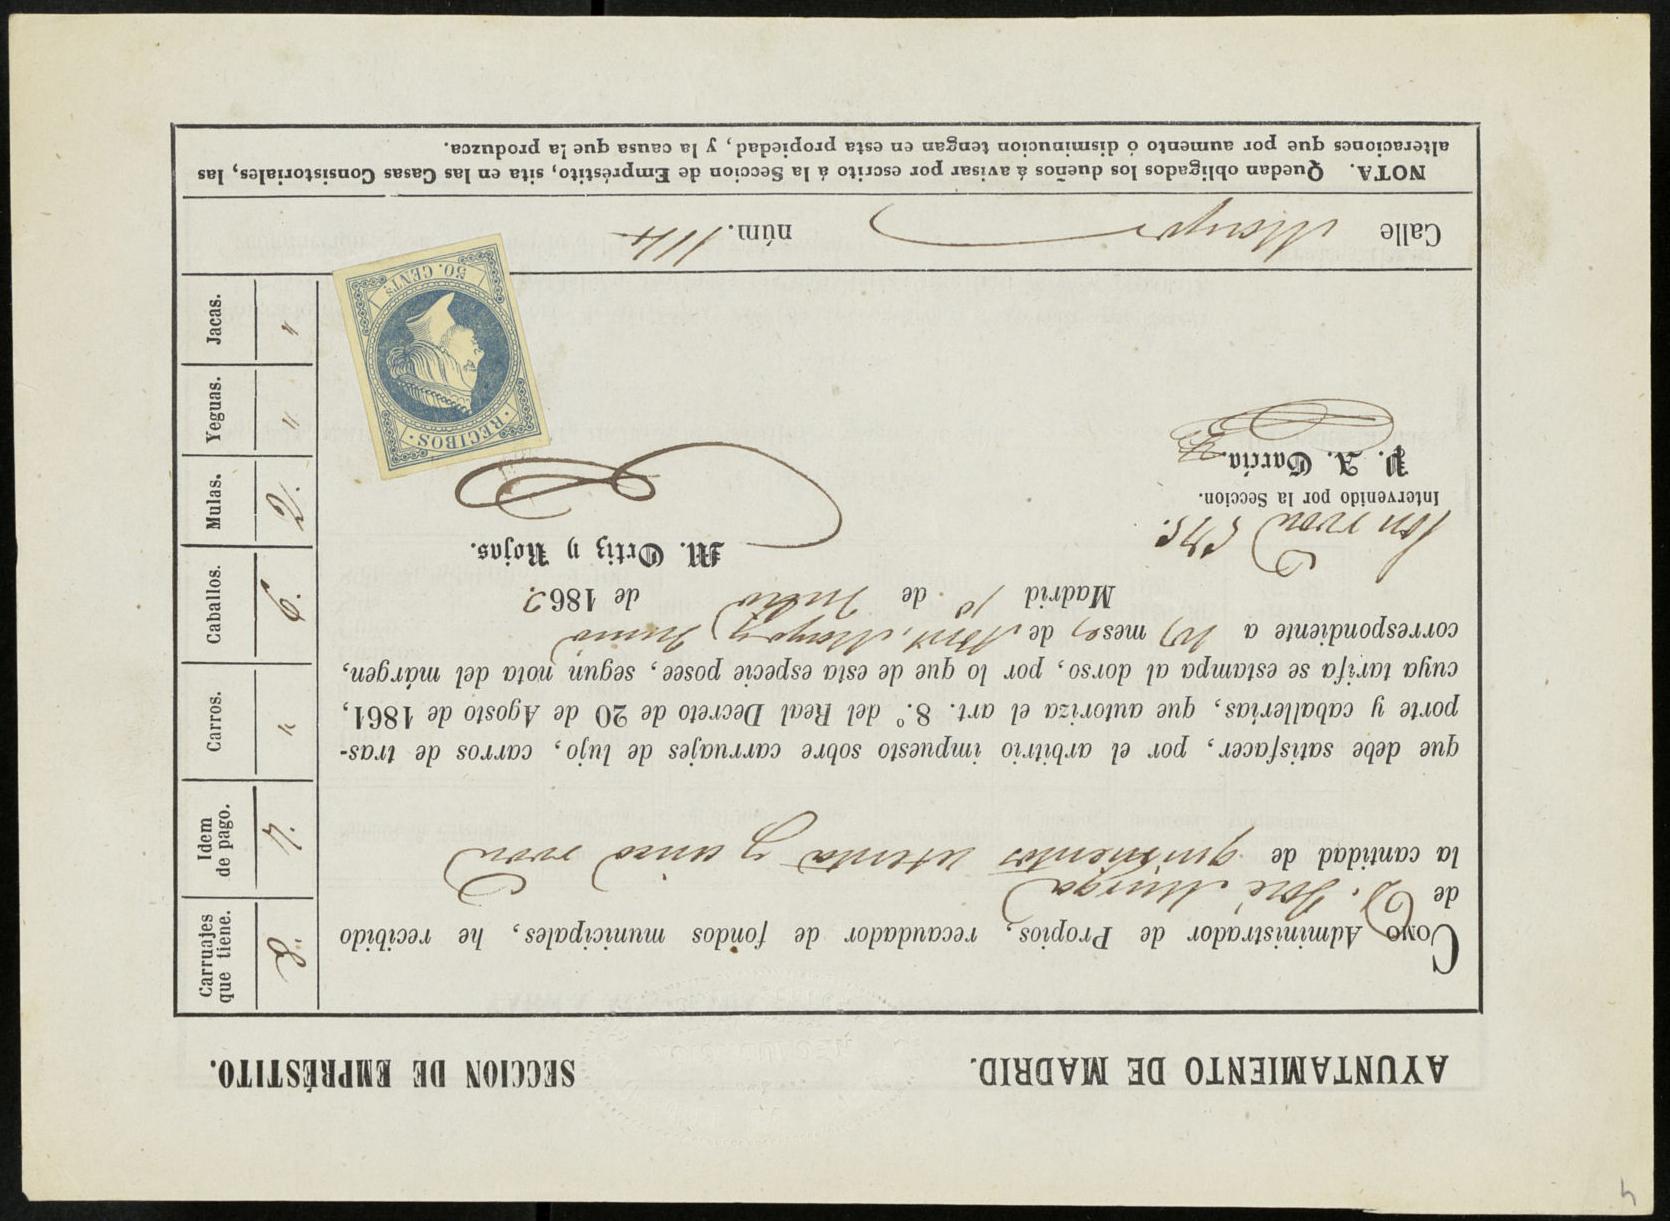 AYUNTAMIENTO DE MADRID.
SECCION DE EMPRÉSTITO.
COMO Administrador de Propios, recaudador de fondos municipales, he recibido
de D. José Murga
la cantidad de quinientos setenta y cinco
que debe satisfacer, por el arbitrio impuesto sobre carruajes de lujo, carros de tras-
porte y caballerías, que autoriza el art. 8.º del Real Decreto de 20 de Agosto de 1861,
cuya tarifa se estampa al dorso, por lo que de esta especie posee, segun nota del márgen,
correspondiente a meses de Abril, Mayo y Junio
Madrid de Julio de 1862
Son 575.
Intervenido por la Seccion.
P. A. García.
M. Ortiz y Rojas.
Carruajes que tiene. 8.
Idem de pago. 7.
Carros. "
Caballos. 6.
Mulas. 2.
Yeguas. "
Jacas. "
RECIBOS
50. CENTS.
Calle núm. 114
NOTA. Quedan obligados los dueños á avisar por escrito á la Seccion de Empréstito, sita en las Casas Consistoriales, las
alteraciones que por aumento ó disminucion tengan en esta propiedad, y la causa que la produzca.